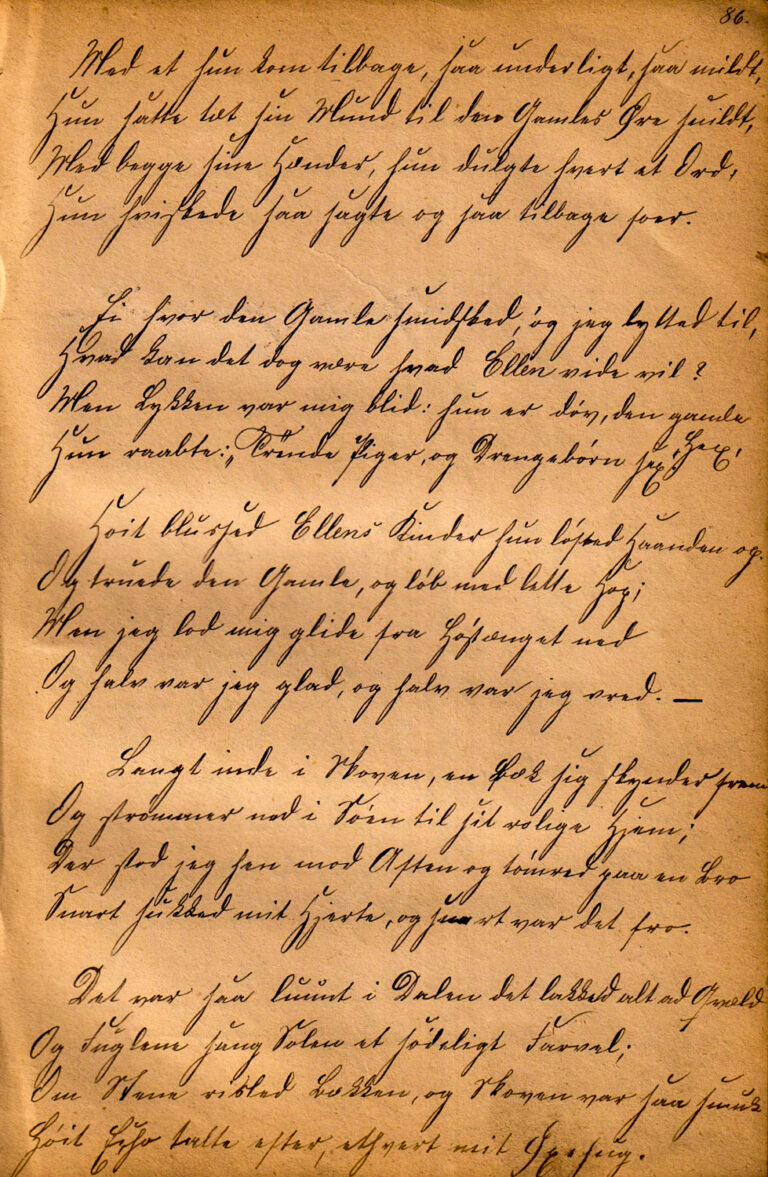 86.
Med et hun kom tilbage, saa underligt, saa mildt,
Hun satte tæt sin Mund til den Gamles Øre snildt,
Med begge sine Hænder, hun dulgte hvert et Ord,
Hun hviskede saa sagte og saa tilbage foer.
Ei hvor den Gamle smidsked, og jeg lytted til,
Hvad kan det dog være hvad Ellen vide vil?
Men Lykken var mig blid: hun er döv, den gamle
Hex,
Hun raabte: „Trende Piger, og Drengebörn sex"
Höit blussed Ellens Kinder hun lösted Haanden op.
Og truede den Gamle, og löb med lette Hop;
Men jeg lod mig glide fra Höstænget ned
Og halv var jeg glad, og halv var jeg vred. —
Langt inde i Skoven, en Bæk sig skynder frem
Og strömmer ned i Söen til sit rolige Hjem;
Der stod jeg hen mod Aften og tömred paa en Bro
Snart sukked mit Hjerte, og snart var det fro.
Det var saa luunt i Dalen det lakked alt ad Qvæld
Og Fuglene sang Solen et södeligt Farvel;
Om Stene risled Bækken, og Skoven var saa smuk
Höit Echo talte efter, ethvert mit